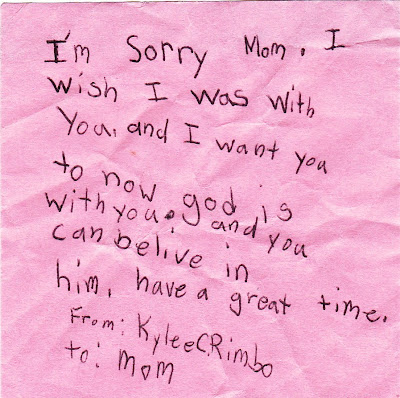 I'm Sorry Mom. I
wish I was with
You. and I want you
to now god is
with you. and you
can belive in
him. have a great time.
From: KyleeC.Rimbo
to: Mom